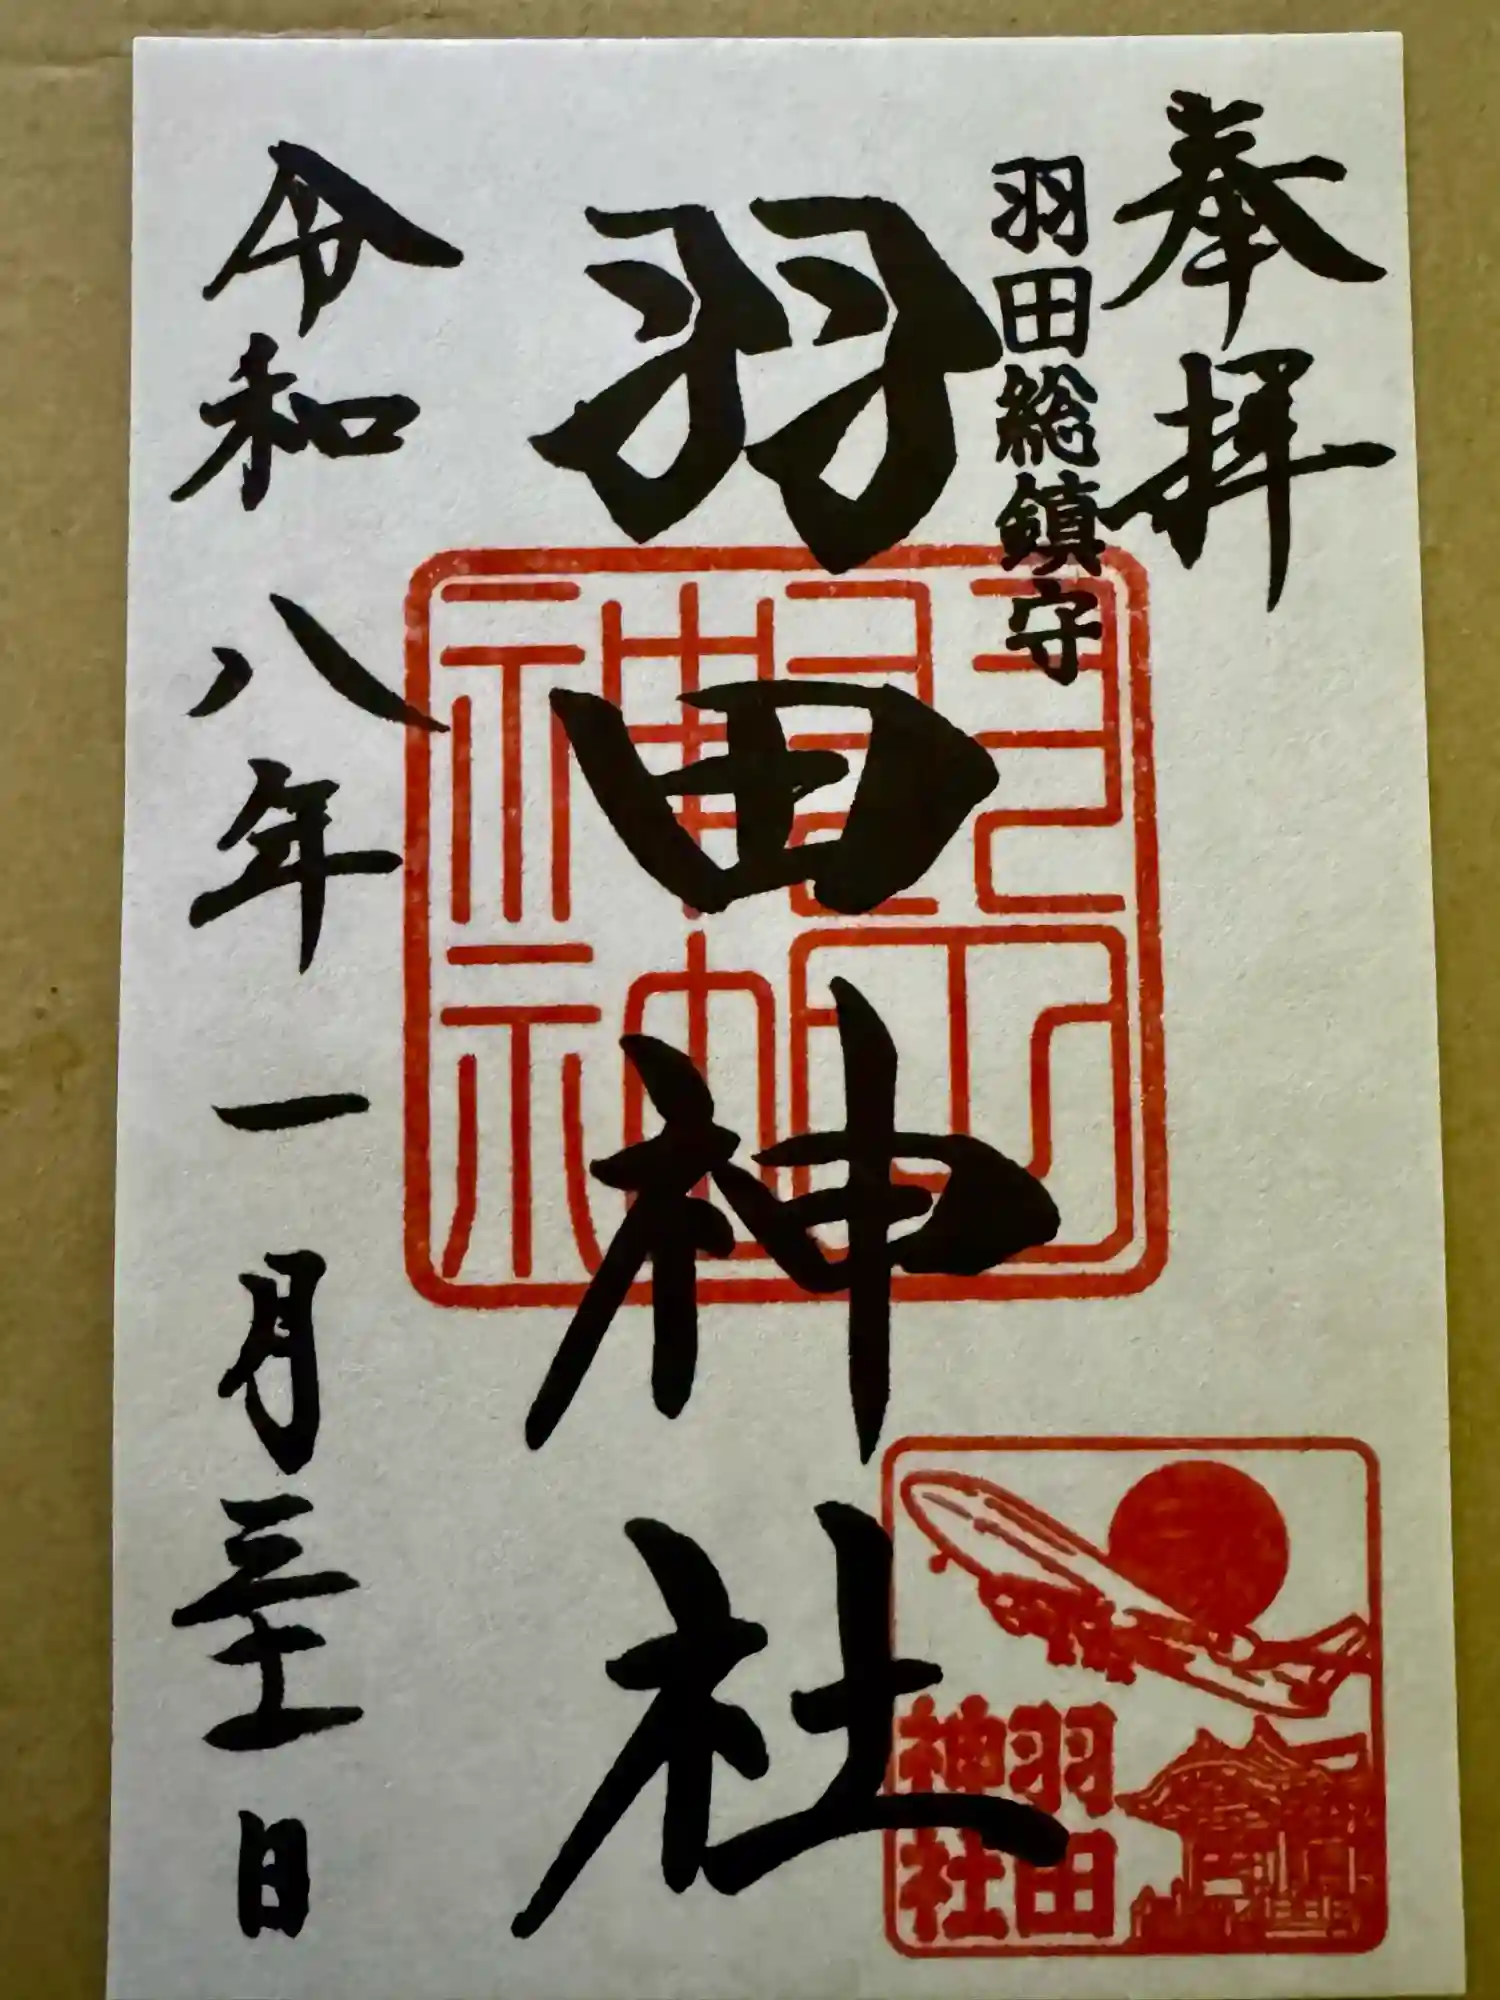 奉拝
羽田総鎮守
羽田神社
令和八年一月三十一日
羽田
神社